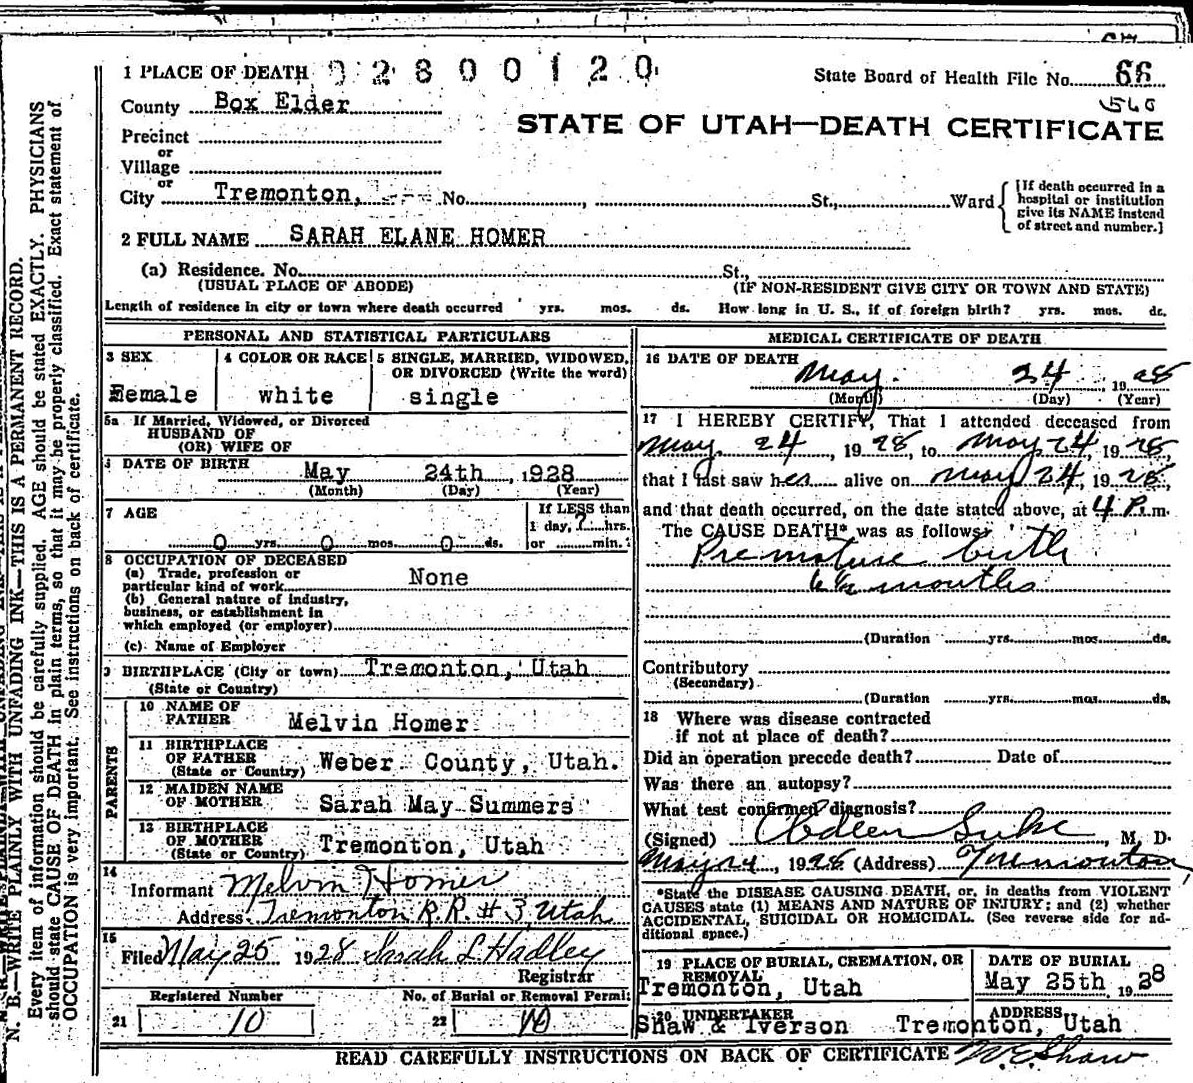 1 PLACE OF DEATH 02800120
State Board of Health File No. 66
560
County Box Elder
STATE OF UTAH—DEATH CERTIFICATE
Precinct
or
Village
or
City Tremonton, No. , St., Ward
[If death occurred in a
hospital or institution
give its NAME instead
of street and number.]
2 FULL NAME SARAH ELANE HOMER
(a) Residence. No. St.,
(USUAL PLACE OF ABODE) (IF NON-RESIDENT GIVE CITY OR TOWN AND STATE)
Length of residence in city or town where death occurred yrs. mos. ds. How long in U. S., if of foreign birth? yrs. mos. ds.
PERSONAL AND STATISTICAL PARTICULARS
3 SEX 4 COLOR OR RACE 5 SINGLE, MARRIED, WIDOWED,
OR DIVORCED (Write the word)
Female white single
5a If Married, Widowed, or Divorced
HUSBAND OF
(OR) WIFE OF
6 DATE OF BIRTH
May 24th , 1928
(Month) (Day) (Year)
7 AGE If LESS than
1 day, ? hrs.
0 yrs. 0 mos. 0 ds. or min.?
8 OCCUPATION OF DECEASED
(a) Trade, profession or
particular kind of work None
(b) General nature of industry,
business, or establishment in
which employed (or employer)
(c) Name of Employer
9 BIRTHPLACE (City or town) Tremonton, Utah
(State or Country)
PARENTS
10 NAME OF
FATHER Melvin Homer
11 BIRTHPLACE
OF FATHER
(State or Country) Weber County, Utah.
12 MAIDEN NAME
OF MOTHER Sarah May Summers
13 BIRTHPLACE
OF MOTHER
(State or Country) Tremonton, Utah
14
Informant Melvin Homer
Address Tremonton R.R. # 3, Utah
15
Filed May 25 1928 Sarah L Hadley
Registrar
Registered Number No. of Burial or Removal Permit
21 10 22 10
MEDICAL CERTIFICATE OF DEATH
16 DATE OF DEATH
May 24 , 1928
(Month) (Day) (Year)
17 I HEREBY CERTIFY, That I attended deceased from
May 24 , 1928, to May 24, 1928,
that I last saw her alive on May 24, 1928,
and that death occurred, on the date stated above, at 4 P.m.
The CAUSE DEATH* was as follows:
Premature birth
6½ months
(Duration yrs. mos. ds.
Contributory
(Secondary)
(Duration yrs. mos. ds.
18 Where was disease contracted
if not at place of death?
Did an operation precede death? Date of
Was there an autopsy?
What test confirmed diagnosis?
(Signed) , M. D.
May 24 , 1928 (Address) Tremonton,
*State the DISEASE CAUSING DEATH, or, in deaths from VIOLENT
CAUSES state (1) MEANS AND NATURE OF INJURY; and (2) whether
ACCIDENTAL, SUICIDAL OR HOMICIDAL. (See reverse side for ad-
ditional space.)
19 PLACE OF BURIAL, CREMATION, OR
REMOVAL
Tremonton, Utah
DATE OF BURIAL
May 25th , 1928
20 UNDERTAKER ADDRESS
Shaw & Iverson Tremonton, Utah
READ CAREFULLY INSTRUCTIONS ON BACK OF CERTIFICATE W.E. Shaw
N. B.—WRITE PLAINLY WITH UNFADING INK—THIS IS A PERMANENT RECORD.
Every item of information should be carefully supplied. AGE should be stated EXACTLY. PHYSICIANS
should state CAUSE OF DEATH in plain terms, so that it may be properly classified. Exact statement of
OCCUPATION is very important. See instructions on back of certificate.